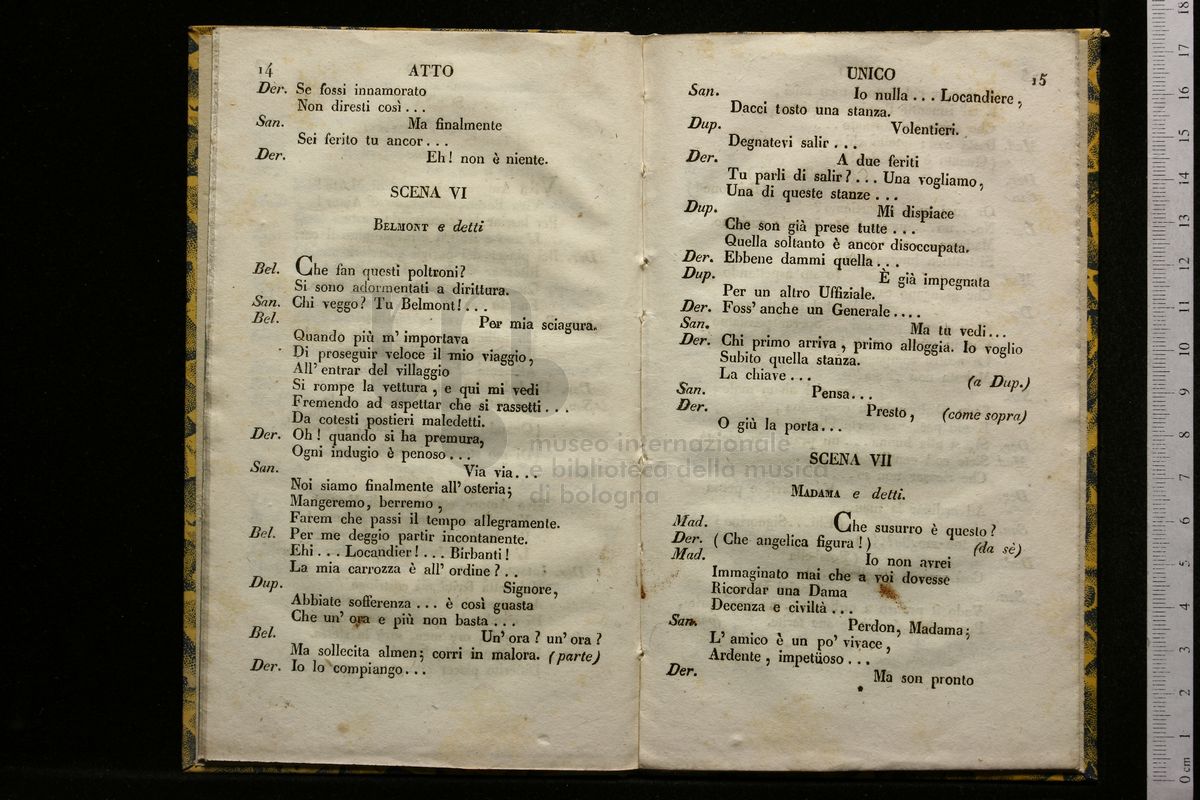 14 ATTO
Der. Se fossi innamorato
Non diresti così...
San. Ma finalmente
Sei ferito tu ancor...
Der. Eh! non è niente.
SCENA VI
BELMONT e detti
Bel. Che fan questi poltroni?
Si sono adormentati a dirittura.
San. Chi veggo? Tu Belmont!...
Bel. Per mia sciagura.
Quando più m' importava
Di proseguir veloce il mio viaggio,
All' entrar del villaggio
Si rompe la vettura, e qui mi vedi
Fremendo ad aspettar che si rassetti...
Da cotesti postieri maledetti.
Der. Oh! quando si ha premura,
Ogni indugio è penoso...
San. Via via...
Noi siamo finalmente all' osteria;
Mangeremo, berremo,
Farem che passi il tempo allegramente.
Bel. Per me deggio partir incontanente.
Ehi... Locandier!... Birbanti!
La mia carrozza è all' ordine?..
Dup. Signore,
Abbiate sofferenza... è così guasta
Che un' ora e più non basta...
Bel. Un' ora? un' ora?
Ma sollecita almen; corri in malora. (parte)
Der. Io lo compiango...
UNICO 15
San. Io nulla... Locandiere,
Dacci tosto una stanza.
Dup. Volentieri.
Degnatevi salir...
Der. A due feriti
Tu parli di salir?... Una vogliamo,
Una di queste stanze...
Dup. Mi dispiace
Che son già prese tutte...
Quella soltanto è ancor disoccupata.
Der. Ebbene dammi quella...
Dup. È già impegnata
Per un altro Uffiziale.
Der. Foss' anche un Generale....
San. Ma tu vedi...
Der. Chi primo arriva, primo alloggia. Io voglio
Subito quella stanza.
La chiave... (a Dup.)
San. Pensa...
Der. Presto, (come sopra)
O giù la porta...
SCENA VII
MADAMA e detti.
Mad. Che susurro è questo?
Der. (Che angelica figura!) (da sè)
Mad. Io non avrei
Immaginato mai che a voi dovesse
Ricordar una Dama
Decenza e civiltà...
San. Perdon, Madama;
L' amico è un po' vivace,
Ardente, impetüoso...
Der. Ma son pronto
museo internazionale
e biblioteca della musica
di bologna
0 cm 1 2 3 4 5 6 7 8 9 10 11 12 13 14 15 16 17 18